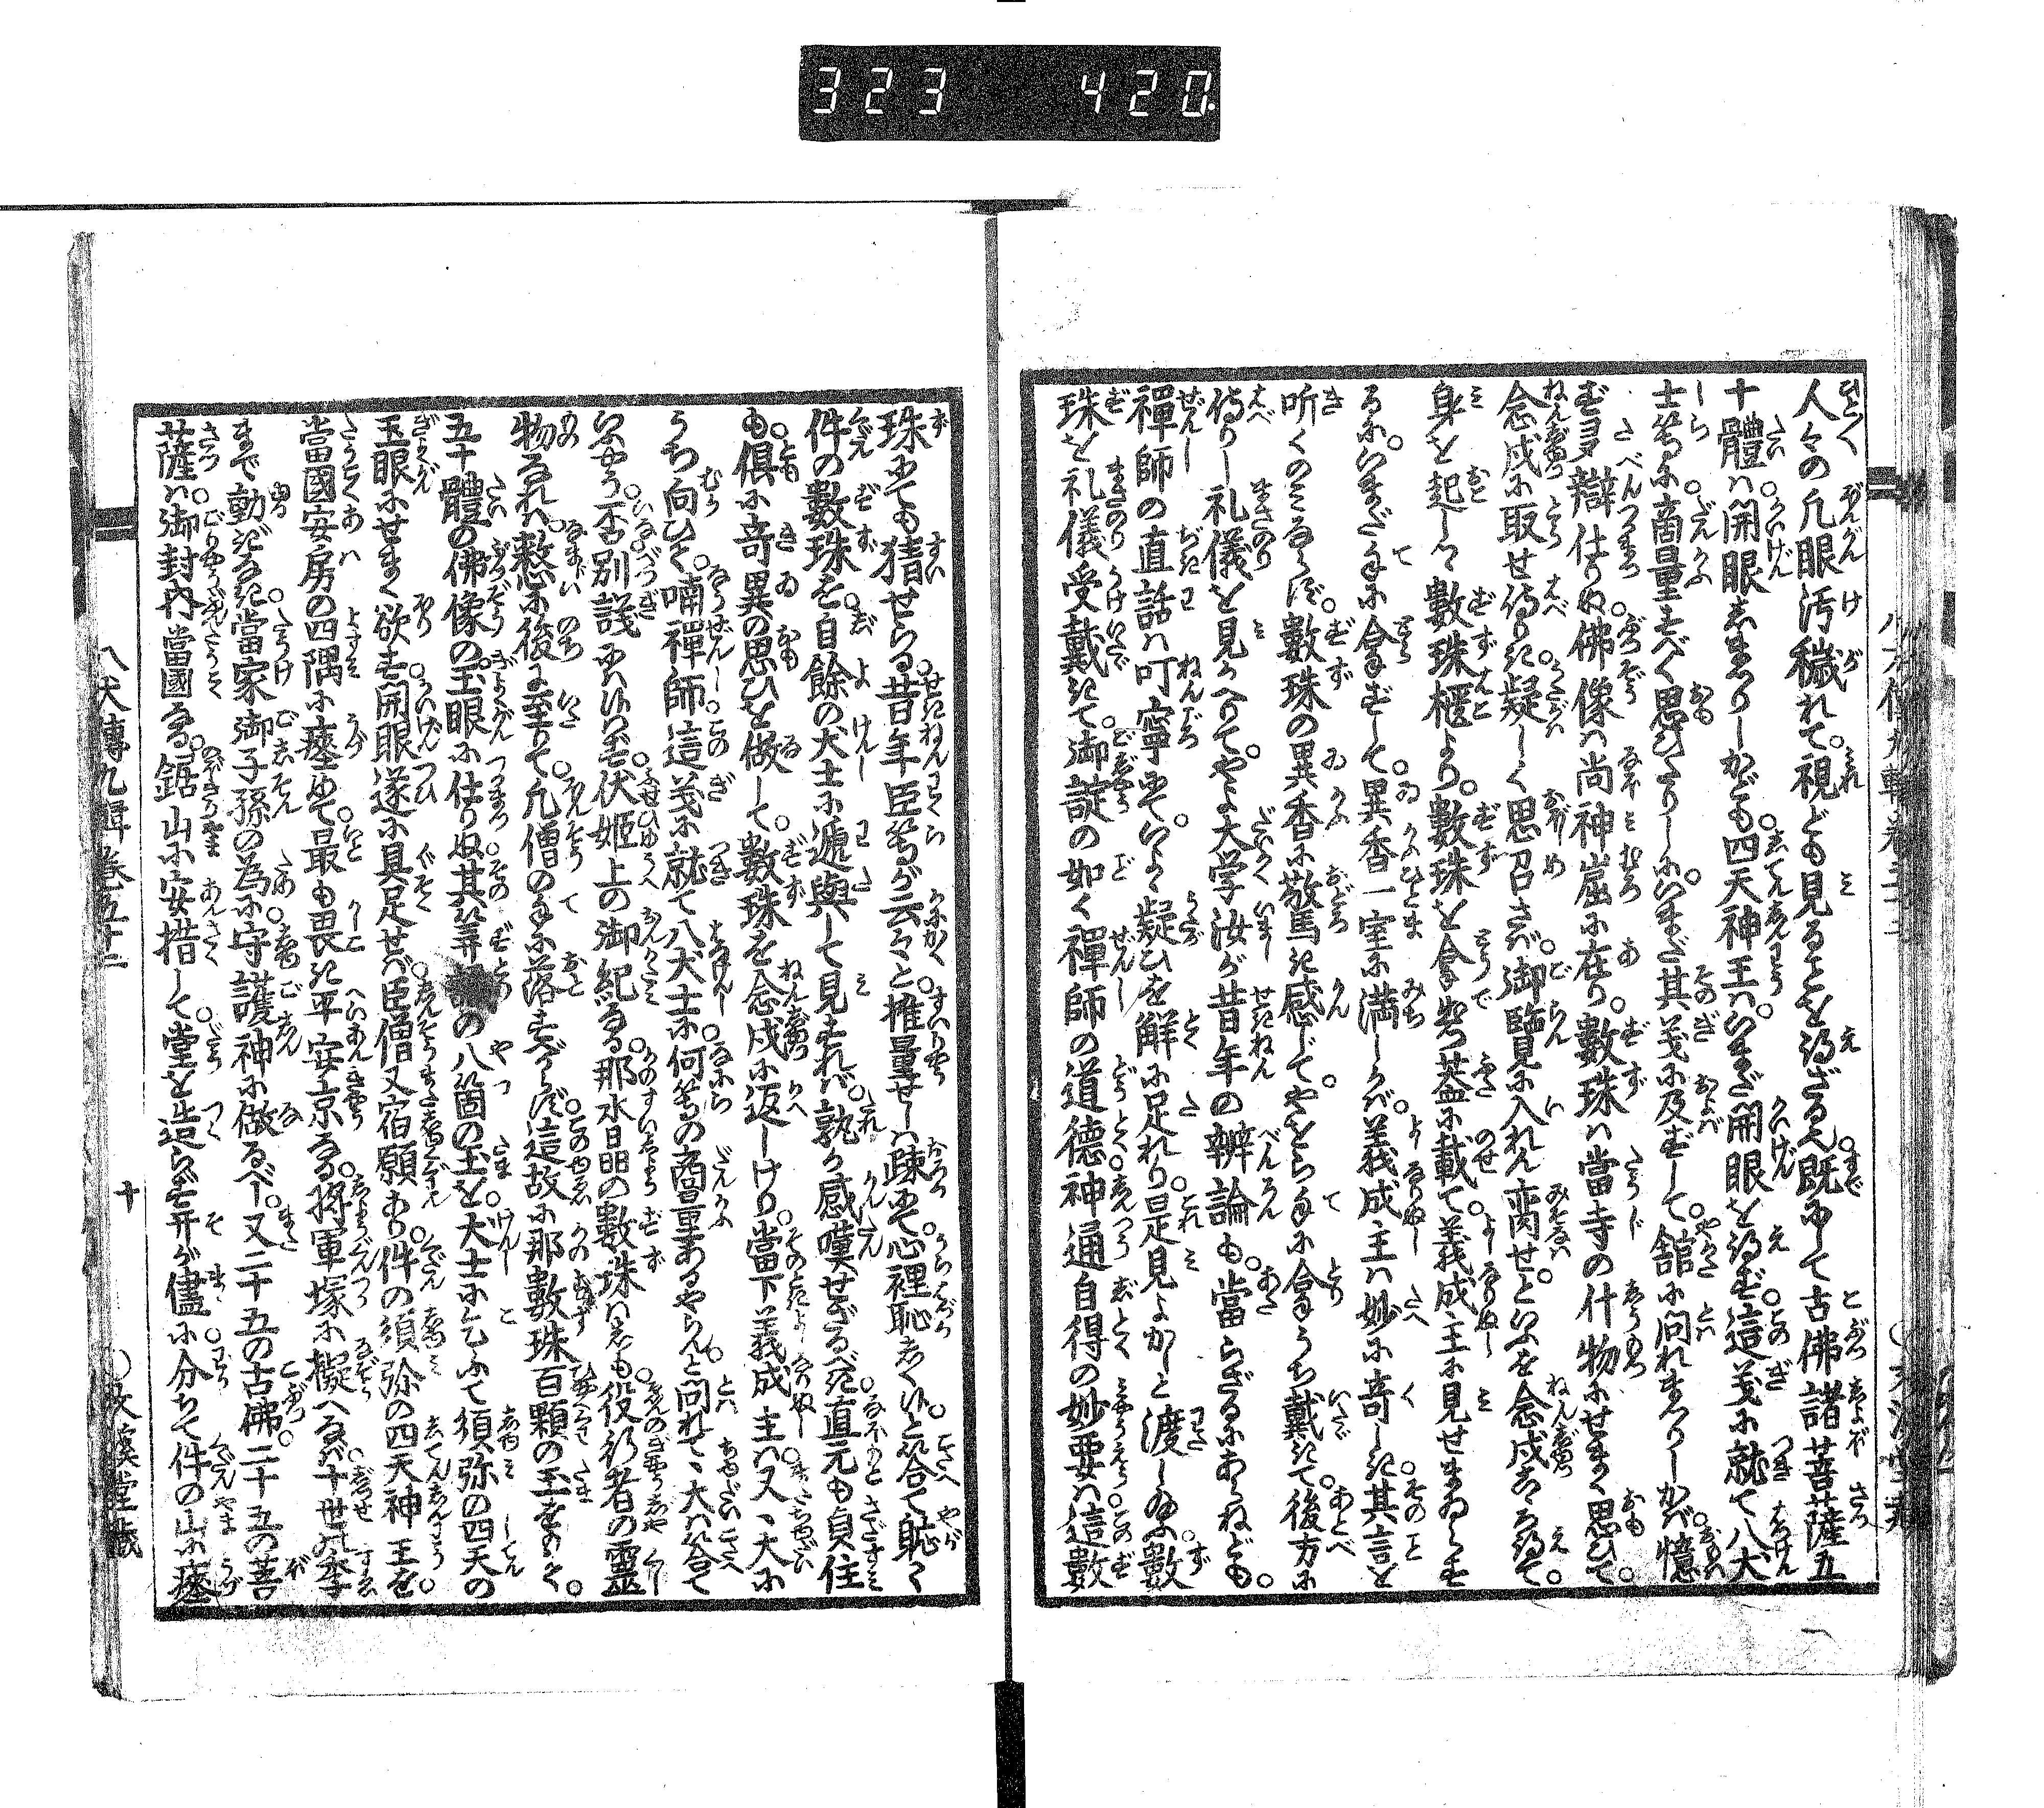 323 420.
人々の凡眼汚穢れて。視ども見ることを得ざるへ。既にして古佛諸菩薩五
十體ハ。開眼しまゐらしかども。四天神王ハ。いまだ開眼を得ず。這義に就て八犬
士等に。商量すべく思ひたりしに。いまだ其義に及ずして。舘に問れまゐらしかバ。憶
ず多辯仕りぬ。佛像ハ尚神嵓に在り。數珠ハ當寺の什物にせまく思ひて。
念戌に取せ侍りき。疑しく思召さバ。御覽に入れん。齎せといふを念戌こゝろ得て。
身を起しつゝ數珠櫃より。數珠を拿出盆に載て。義成主に見せまゐらする
るに。いまだ手に拿ずして。異香一室に滿しかバ。義成主ハ妙に奇しき。其言を
听くのミならず。數珠の異香に敬馬き感じて。やをら手に拿りうち戴きて。後方に
侍りし礼儀を見かへりて。やよ大学汝が昔年の辨論も。當らざるにあらねども。
禪師の直話ハ叮寧にて。いよゝ疑ひを觧に足れり。是見よかしと渡し給ふ數
珠を礼儀受戴きて。御諚の如く禪師の道德。神通自得の妙要ハ。這數
珠にても猜せらる。昔年臣等が云々と。推量せしハ疎にて。心裡恥しく候。と答て躬て
件の數珠を。自餘の犬士に遞與して見すれバ。孰か感嘆せざるべき。直元も貞住
も。倶に奇異の思ひを做して。數珠を念戌に返しけり。當下義成主ハ又ヽ大に
うち向ひて。喃禪師。這義に就て八犬士に。何等の商量あるやらんと問れてヽ大ハ答て
いふやう。否別議にハ候はず。伏姫上の御紀る。那水晶の數珠ハしも。役行者の靈
物なれバ。憗に後に至りて。凡僧の手に落すべからず。這故に那數珠百顆の玉をのミ。
五十體の佛像の。玉眼に仕りぬ。其算の八箇の玉を。犬士に乞ふて須弥の四天の
玉眼にせまく欲す。開眼遂に具足せバ。臣僧又宿願あり。件の須弥の四天神王を。
當國安房の四隅に瘞めて。最も畏き平安京なる。將軍塚に擬へなバ。十世の季
まで動ぎなき。當家御子孫の為に。守護神に做るべし。又二十五の古佛。二十五の菩
薩ハ。御封内當國なる。鋸山に安措して。堂を造らず开が儘に。分ちて件の山に瘞
八犬傳九輯卷五十二
十
○文溪堂藏